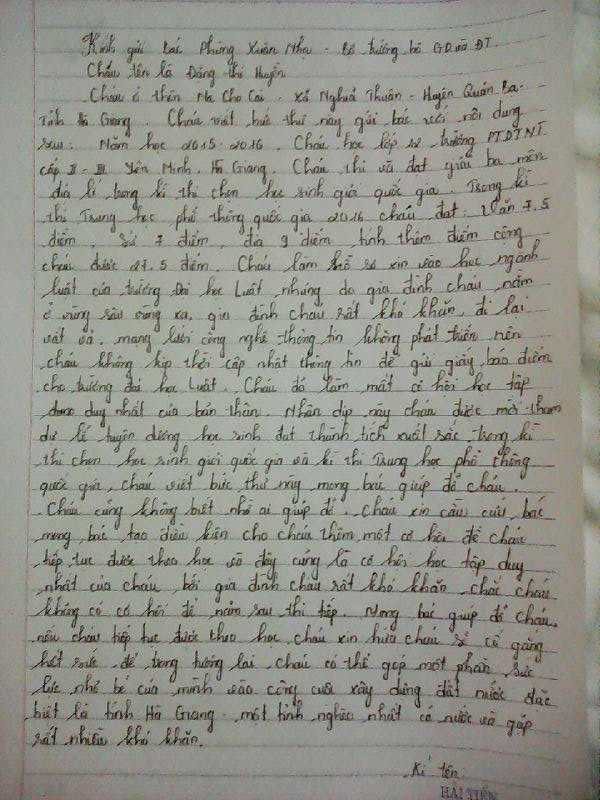 Kính gửi Bác Phùng Xuân Nhạ - Bộ trưởng bộ GD và ĐT.
Cháu tên là Đặng thị Huyền
Cháu ở thôn Ma Cho Cải - Xã Nghĩa Thuận - Huyện Quản Bạ -
Tỉnh Hà Giang. Cháu viết bức thư này gửi bác với nội dung
sau: Năm học 2015-2016. Cháu học lớp 12 trường PTDTNT
cấp II - III Yên Minh, Hà Giang. Cháu thi và đạt giải ba môn
địa lí trong kì thi chọn học sinh giỏi quốc gia. Trong kì
thi Trung học phổ thông quốc gia 2016 cháu đạt: Văn 7.5
điểm, Sử 7 điểm, địa 9 điểm tính thêm điểm cộng
cháu được 27.5 điểm. Cháu làm hồ sơ xin vào học ngành
luật của trường Đại học Luật nhưng do gia đình cháu nằm
ở vùng sâu vùng xa, gia đình cháu rất khó khăn, đi lại
vất vả, mạng lưới công nghệ thông tin không phát triển nên
cháu không kịp thời cập nhật thông tin để gửi giấy báo điểm
cho trường đại học Luật. Cháu đã làm mất cơ hội học tập
được duy nhất của bản thân. Nhân dịp này cháu được mời tham
dự lễ tuyên dương học sinh đạt thành tích xuất sắc trong kì
thi chọn học sinh giỏi quốc gia và kì thi Trung học phổ thông
quốc gia, cháu viết bức thư này mong bác giúp đỡ cháu.
Cháu cũng không biết nhờ ai giúp đỡ. Cháu xin cầu cứu bác
mong bác tạo điều kiện cho cháu thêm một cơ hội để cháu
tiếp tục được theo học vì đây cũng là cơ hội học tập duy
nhất của cháu, bởi gia đình cháu rất khó khăn, chắc cháu
không có cơ hội để năm sau thi tiếp. Mong bác giúp đỡ cháu,
nếu cháu tiếp tục được theo học, cháu xin hứa cháu sẽ cố gắng
hết sức để trong tương lai cháu có thể góp một phần sức
lực nhỏ bé của mình vào công cuộc xây dựng đất nước đặc
biệt là tỉnh Hà Giang - một tỉnh nghèo nhất cả nước và gặp
rất nhiều khó khăn.
Kí tên
HẢI TIẾN